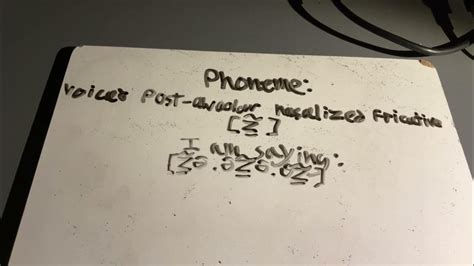 Phoneme:
Voiced Post-alveolar nasalized Fricative
[ʒ̃]
I am saying:
[ʒ̃ə.əʒ̃ə.əʒ̃]